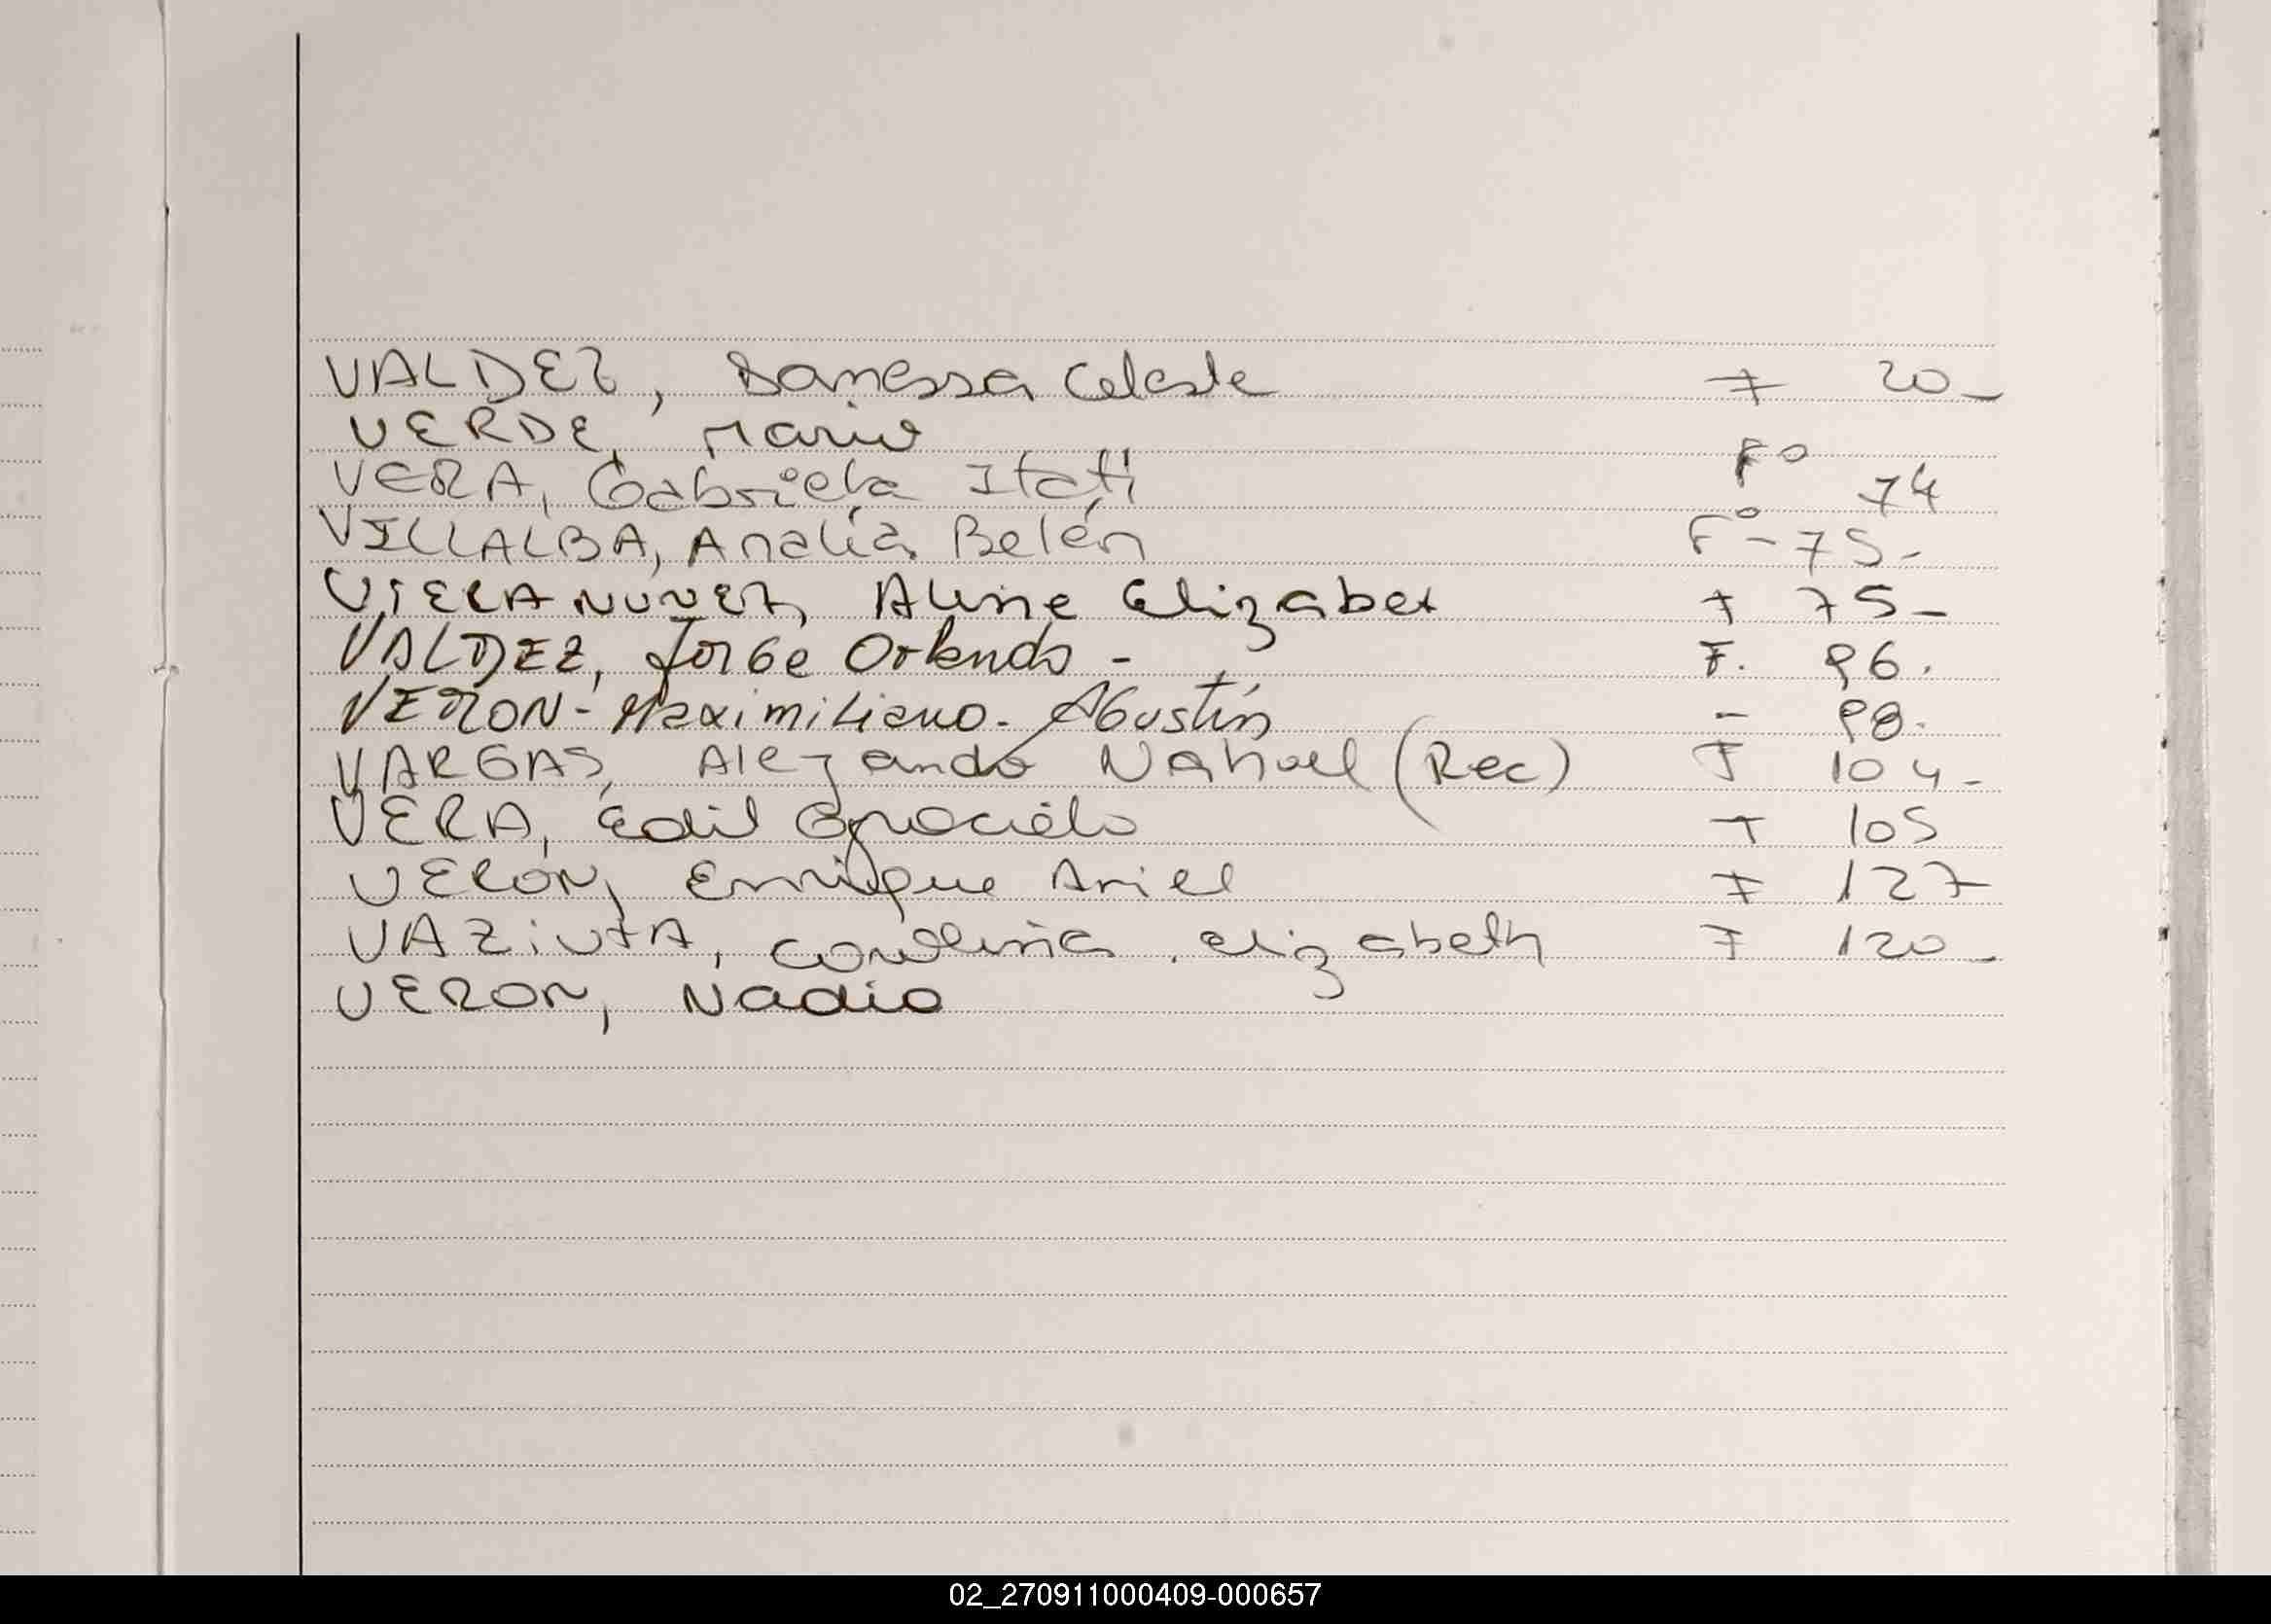 VALDEZ, Damessa Celeste F 20-
VERDE, Mario Fº
VERA, Gabriela Itatí 74
VILLALBA, Analía Belén Fº - 75-
VIERA NUNEZ, Aline Elizabet F 75-
VALDEZ, Jorge Orlando - F. 96.
VERON- Maximiliano- Agustín - 98.
VARGAS, Alejando Nahuel (Rec) F 104-
VERA, Edil Graciela F 105
VERÓN, Enrique Ariel F 127
VAZiUTA, elizabeth F 120-
VERON, Nadia
02_270911000409-000657